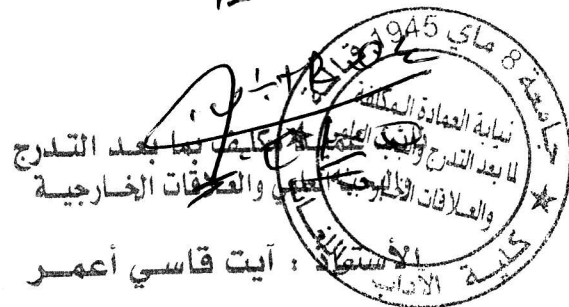 جامعة 8 ماي 1945
نيابة العمادة المكلفة
لما بعد التدرج والبحث العلمي
والعلاقات الخارجية
كلية الآداب
مكلف بما بعد التدرج
والبحث العلمي والعلاقات الخارجية
الأستاذ : آيت قاسي أعمر